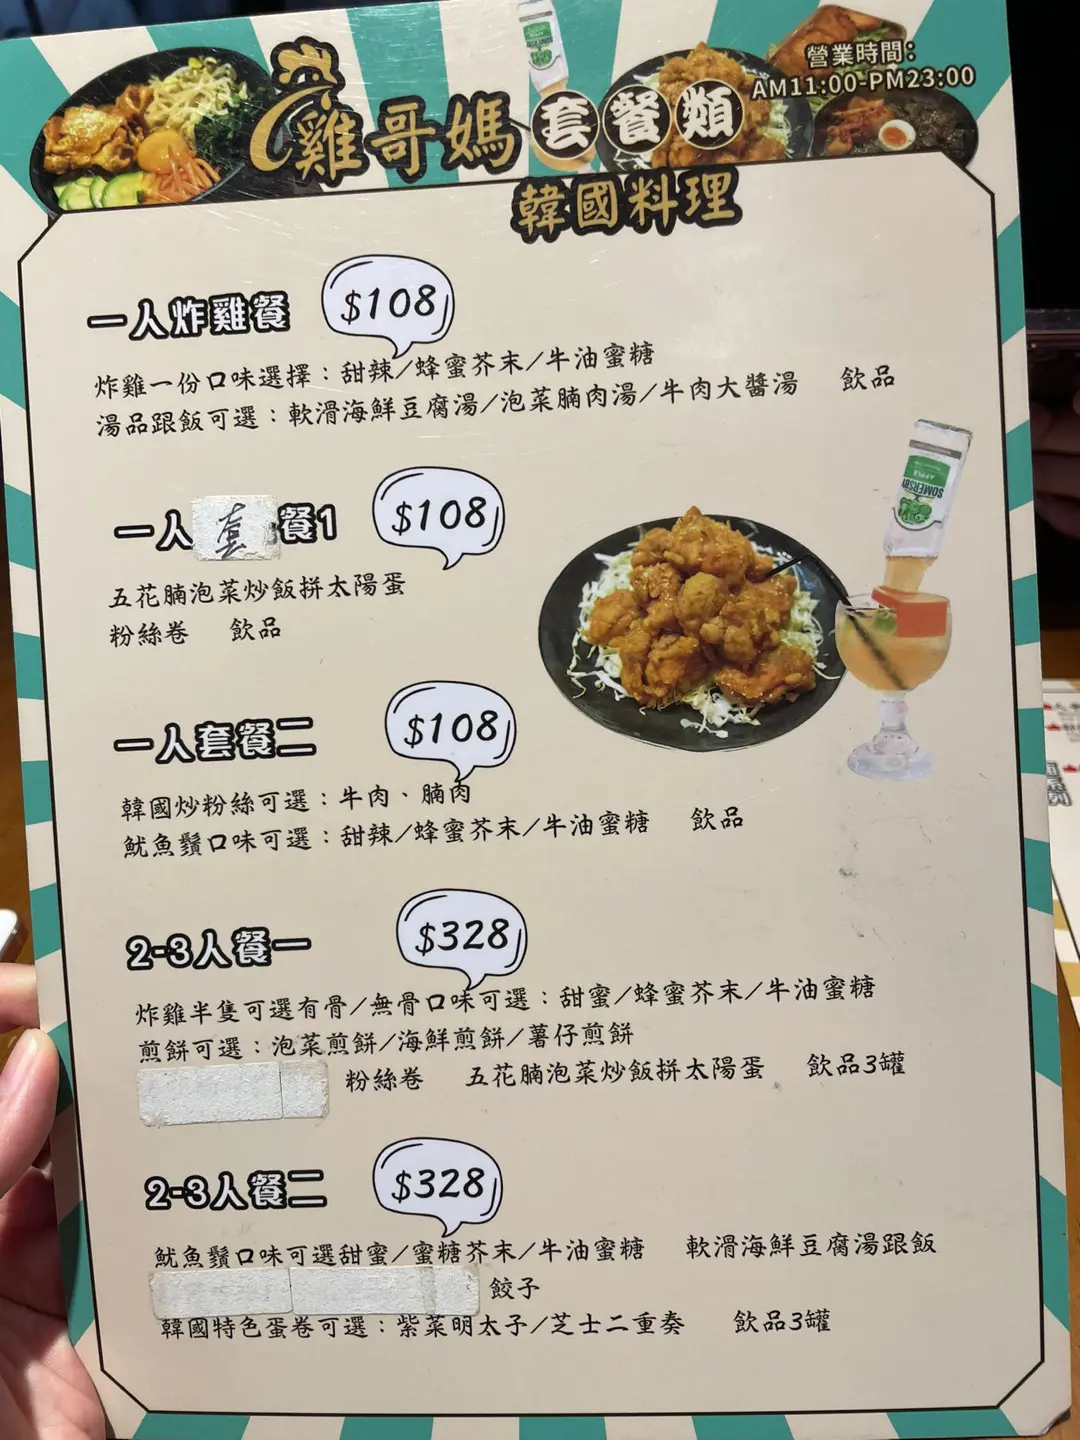 雞哥媽 套餐類
營業時間：
AM11:00-PM23:00
韓國料理
一人炸雞餐 $108
炸雞一份口味選擇：甜辣/蜂蜜芥末/牛油蜜糖
湯品跟飯可選：軟滑海鮮豆腐湯/泡菜腩肉湯/牛肉大醬湯 飲品
一人套餐1 $108
五花腩泡菜炒飯拼太陽蛋
粉絲卷 飲品
SOMERSBY
APPLE
一人套餐二 $108
韓國炒粉絲可選：牛肉、腩肉
魷魚鬚口味可選：甜辣/蜂蜜芥末/牛油蜜糖 飲品
2-3人餐一 $328
炸雞半隻可選有骨/無骨口味可選：甜蜜/蜂蜜芥末/牛油蜜糖
煎餅可選：泡菜煎餅/海鮮煎餅/薯仔煎餅
粉絲卷 五花腩泡菜炒飯拼太陽蛋 飲品3罐
2-3人餐二 $328
魷魚鬚口味可選甜蜜/蜜糖芥末/牛油蜜糖 軟滑海鮮豆腐湯跟飯
餃子
韓國特色蛋卷可選：紫菜明太子/芝士二重奏 飲品3罐